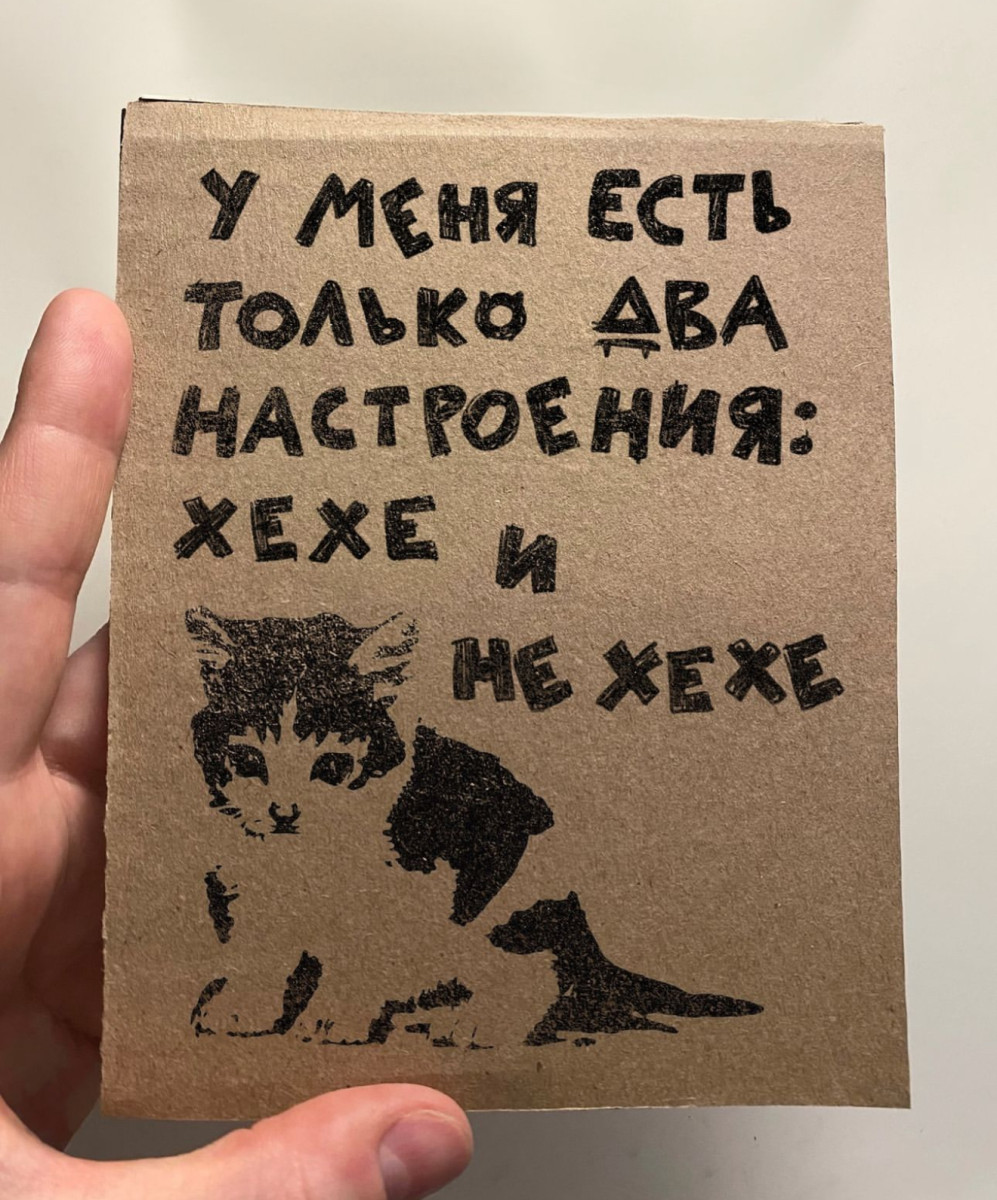 У МЕНЯ ЕСТЬ
ТОЛЬКО ДВА
НАСТРОЕНИЯ:
ХЕХЕ И
НЕ ХЕХЕ